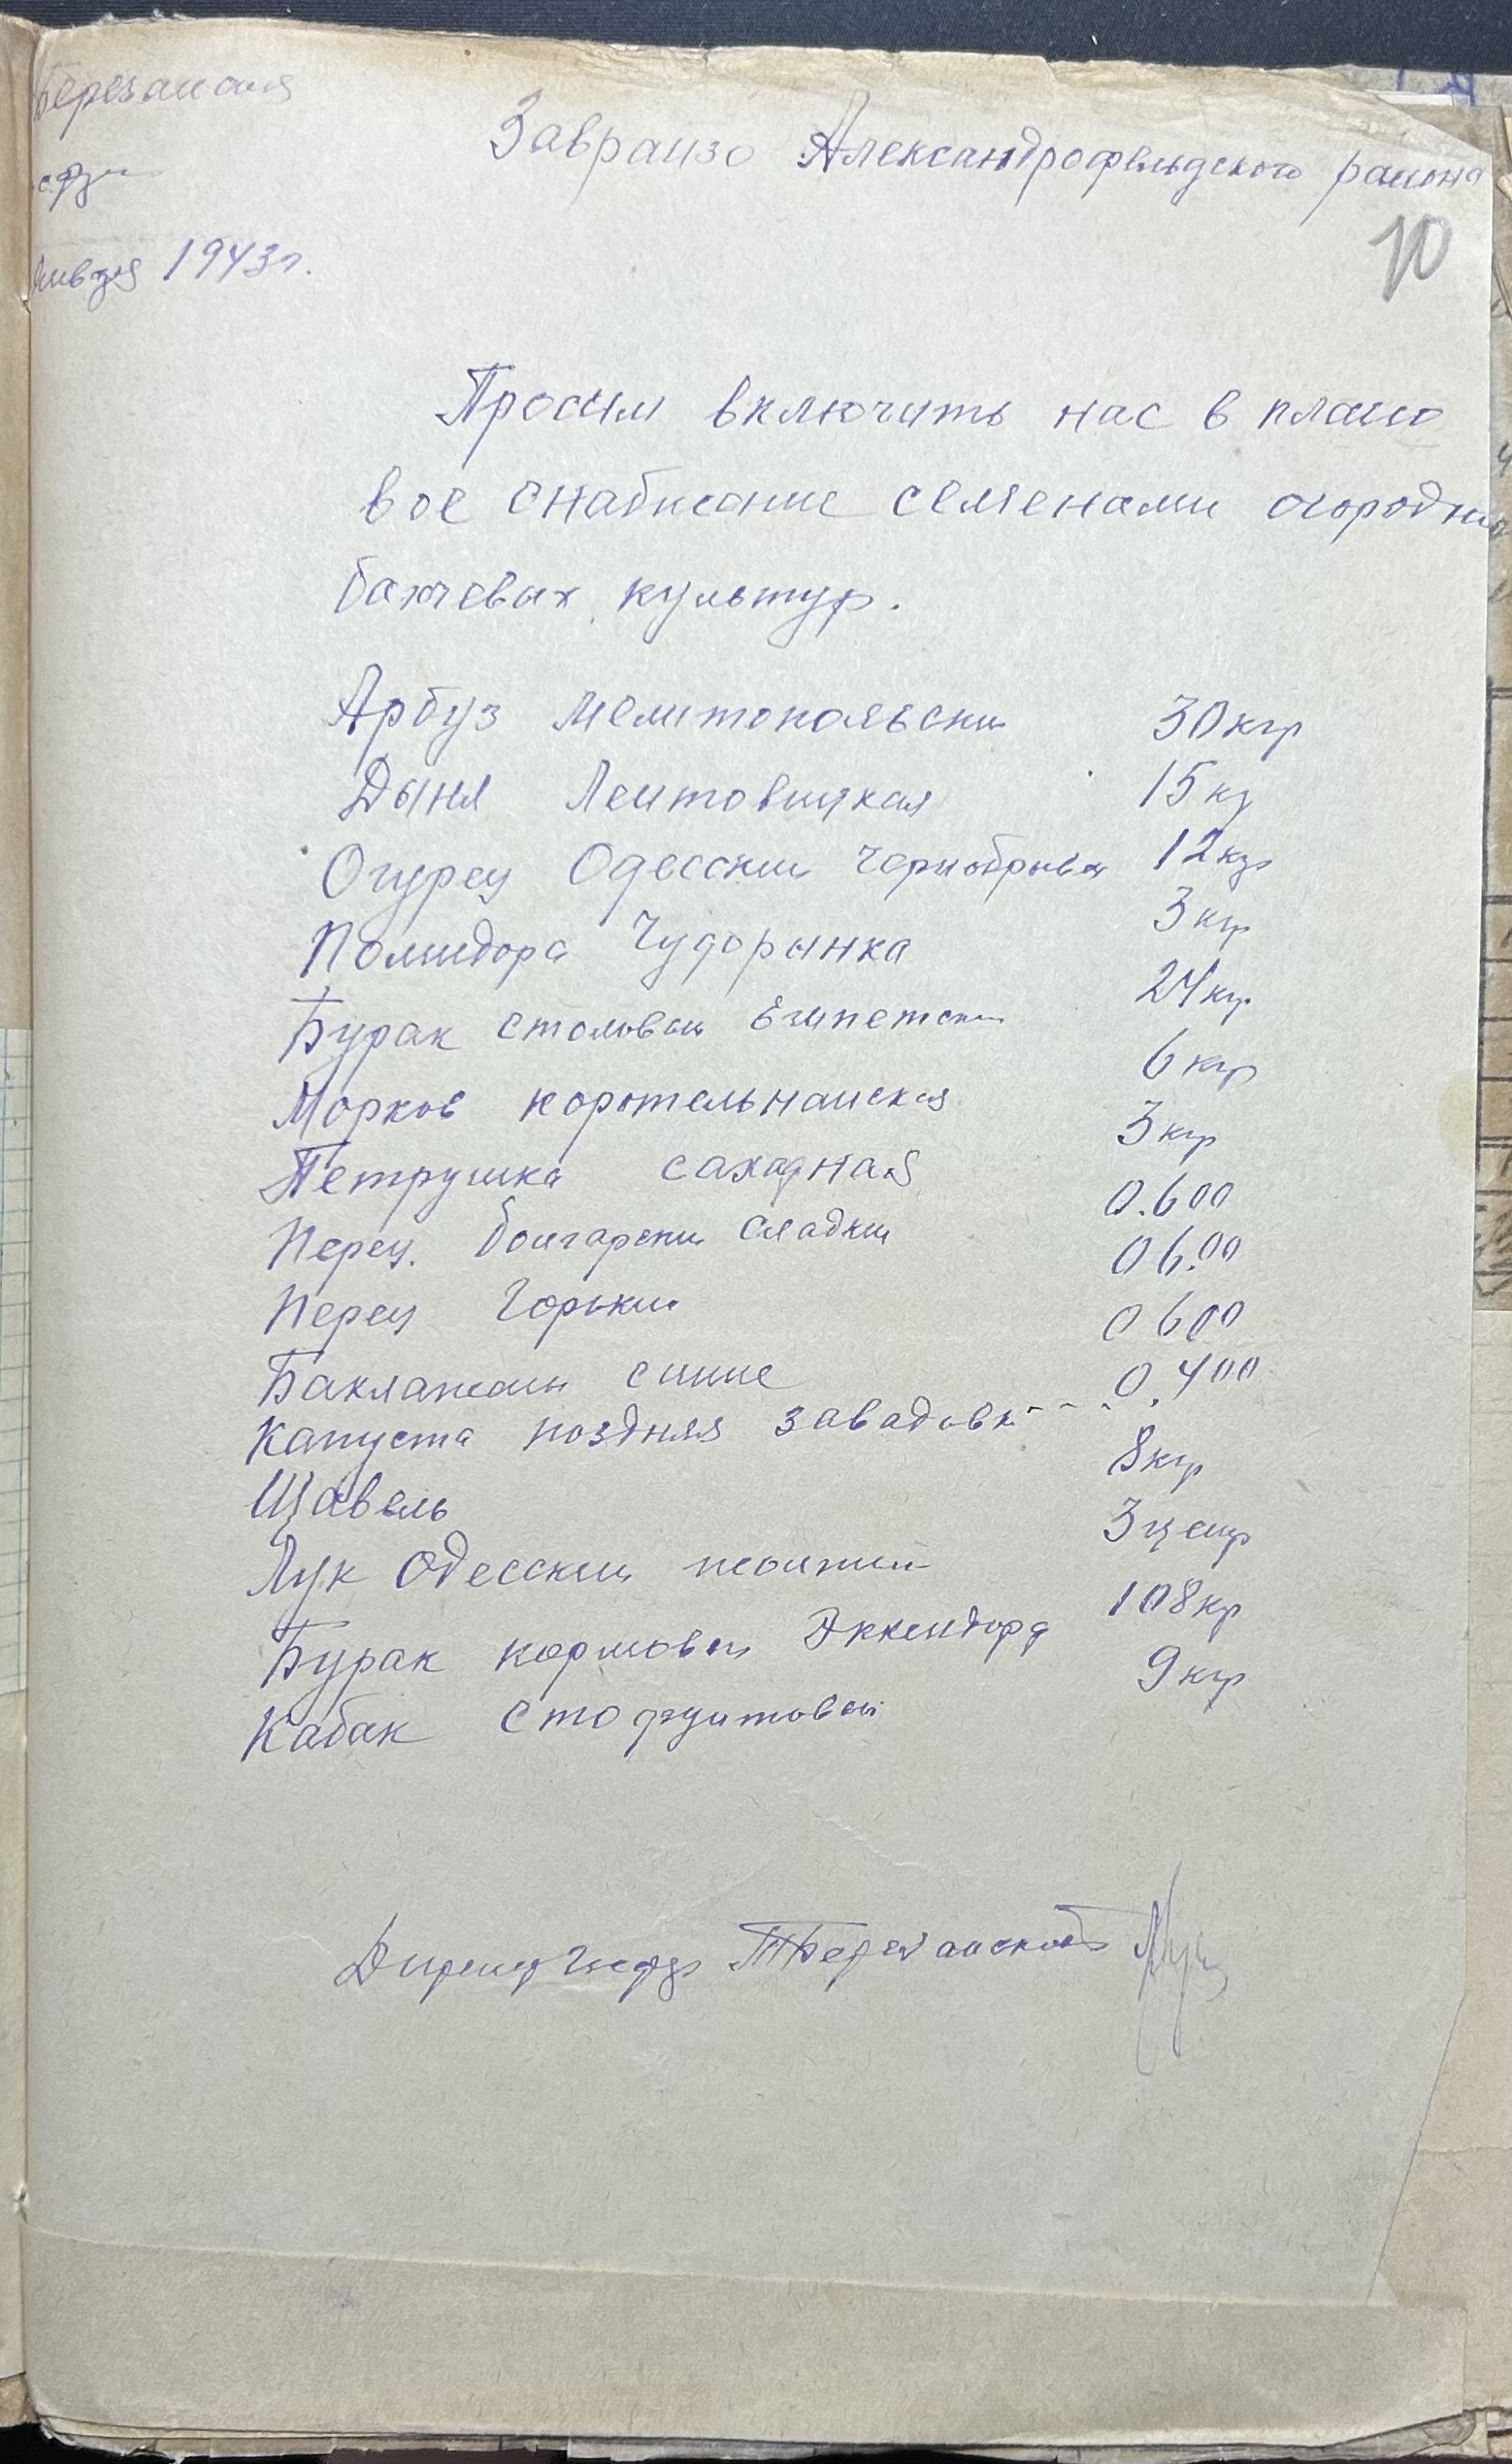 Березанская
Января 1943г.
Завраизо Александрофельдского района
10
Просим включить нас в плано
вое снабжение семенами огородно
бахчевых культур.
Арбуз мелитопольски 30 кгр
Дыня 15 кг
Огурец Одесски чернобривы 12 кгр
Помидора Чудорынка 3 кгр
Бурак столовый Египетски 24 кгр.
Морков каротельнанская 6 кгр
Петрушка сахарная 3 кгр
Перец. болгарски сладки 0.600
Перец Горьки 06.00
Баклажаны синие 0 600
Капуста поздняя завадовк --- 0.400
Щавель 8 кгр
Лук Одесский жолтий 3 центр
Бурак кормовы Эккендорф 108 кгр
Кабак стофунтовый 9 кгр
Березанской